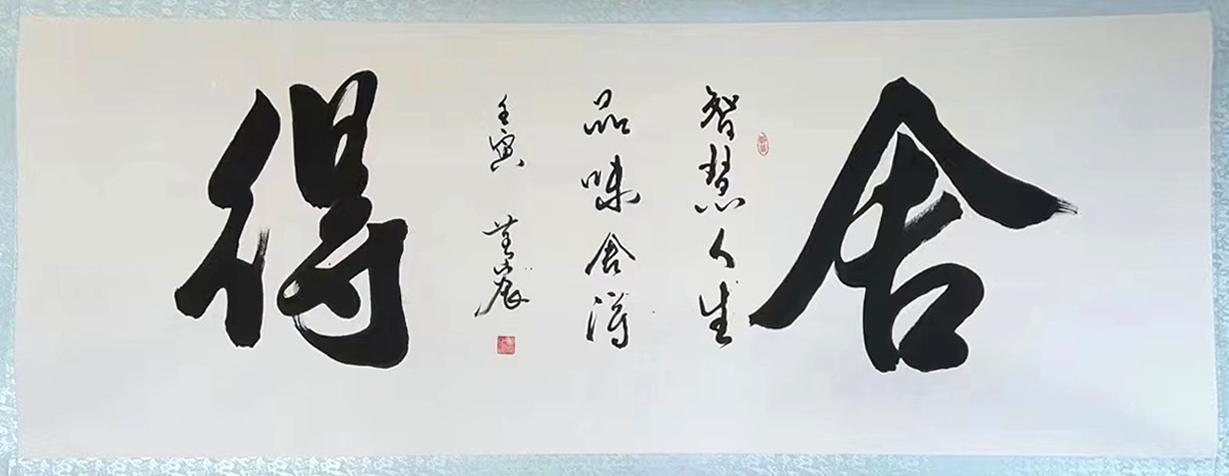 舍
智慧人生
品味舍得
壬寅
得